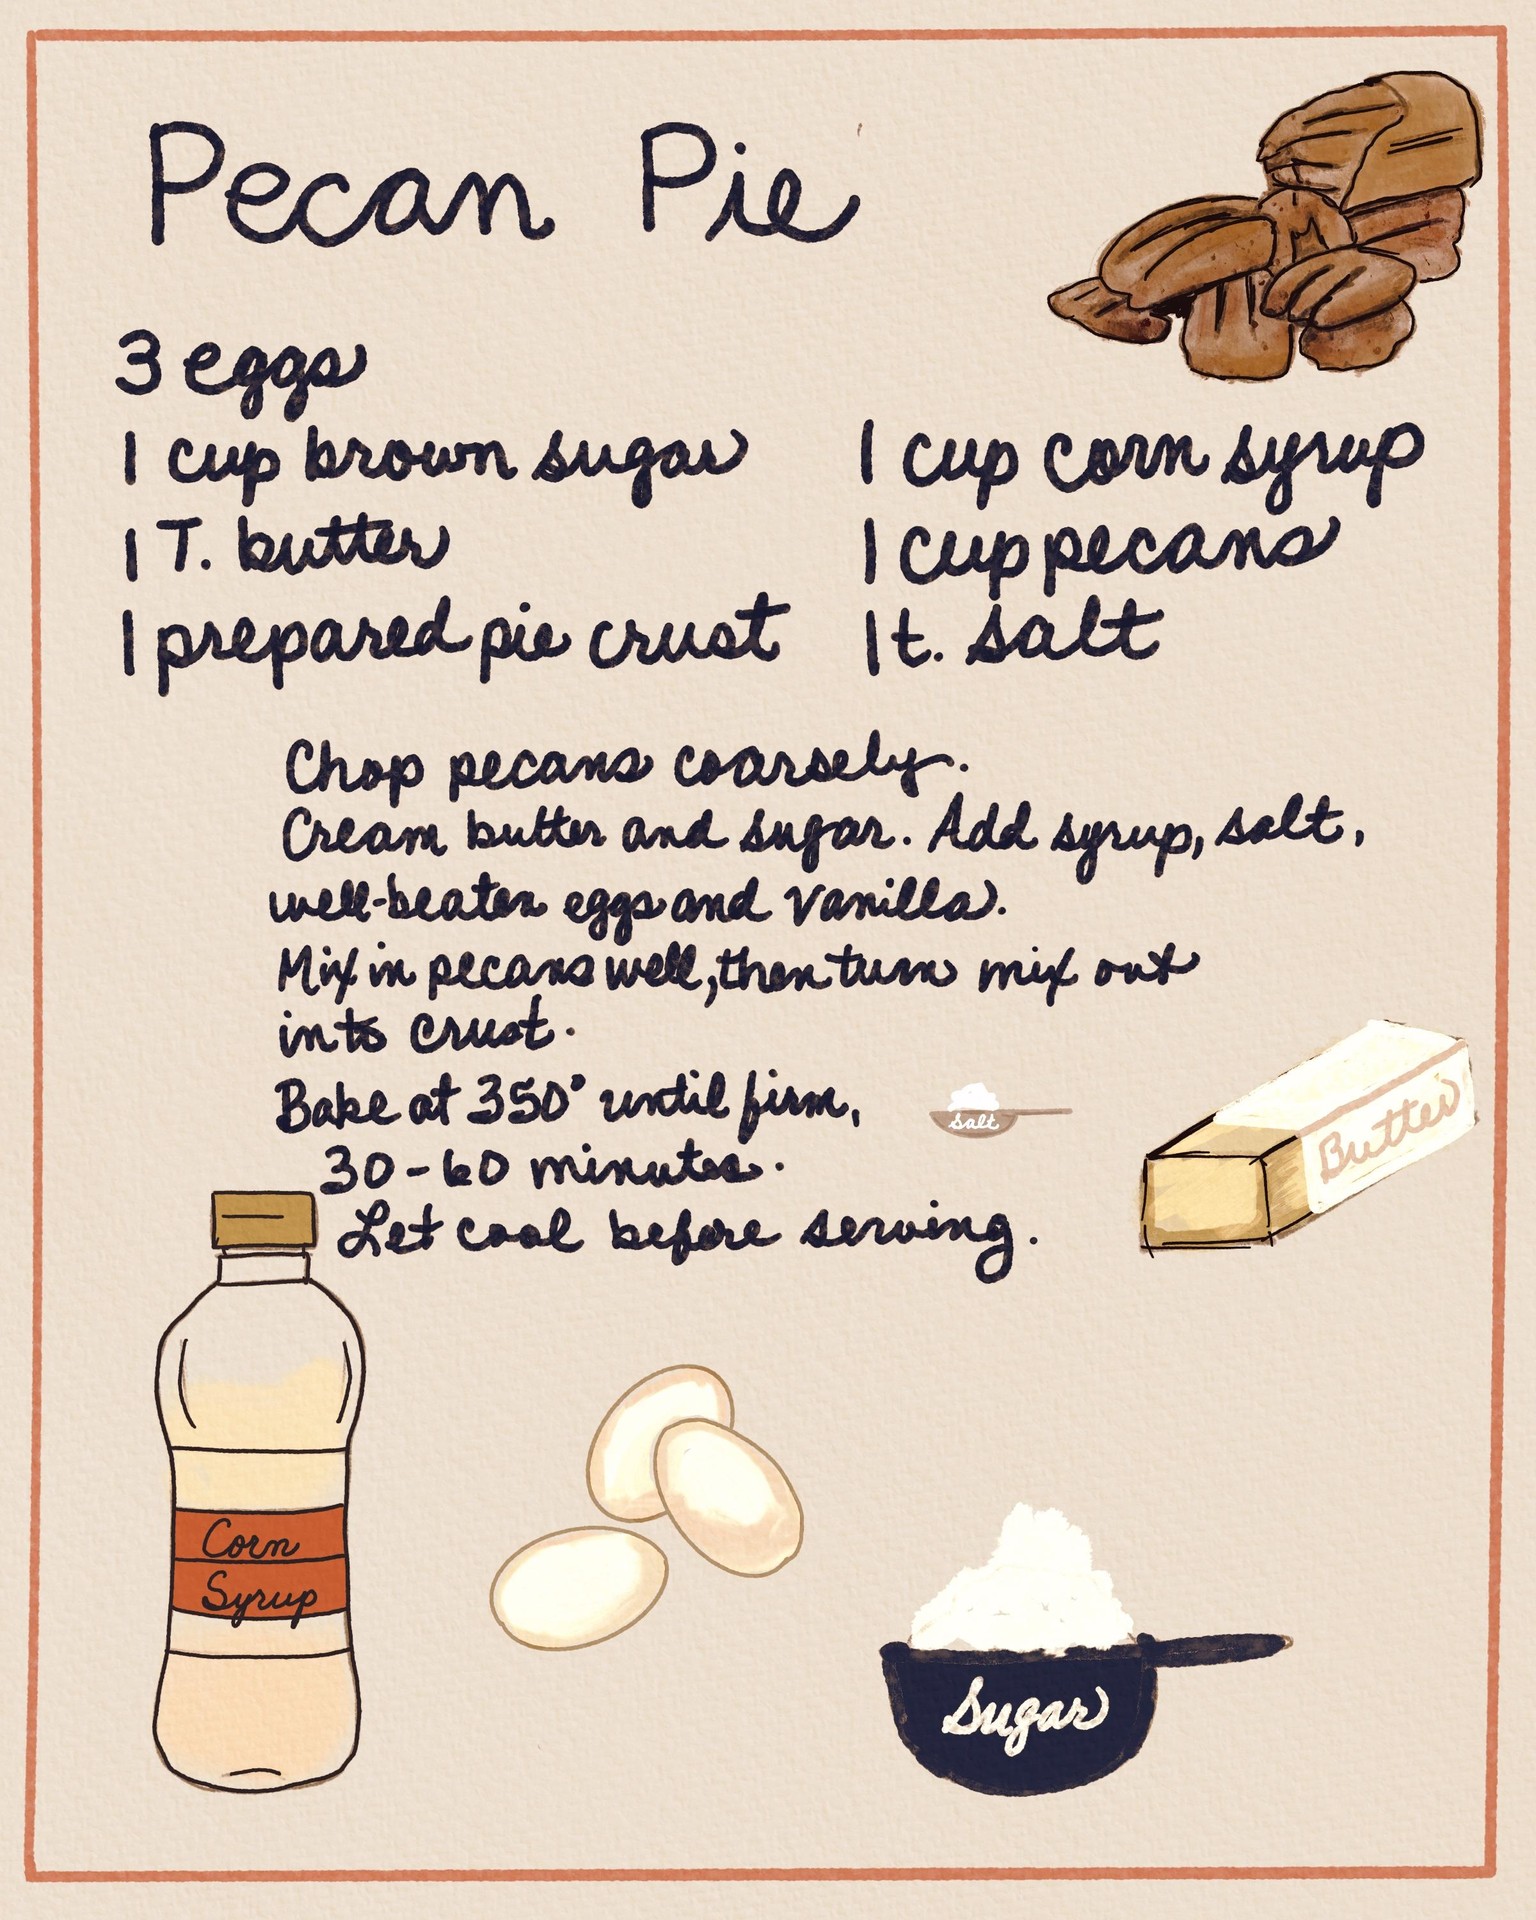 Pecan Pie
3 eggs
1 cup brown sugar
1 T. butter
1 prepared pie crust
1 cup corn syrup
1 cup pecans
1 t. salt
Chop pecans coarsely.
Cream butter and sugar. Add syrup, salt,
well-beaten eggs and vanilla.
Mix in pecans well, then turn mix out
into crust.
Bake at 350° until firm,
30-60 minutes.
Let cool before serving.
salt
Butter
Corn
Syrup
Sugar